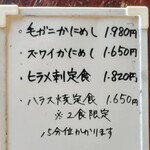 ・毛ガニかにめし 1.980円
・ズワイかにめし 1.650円
・ヒラメ刺定食 1.820円
・ハラス焼定食 1.650円
※2食限定
15分位かかります